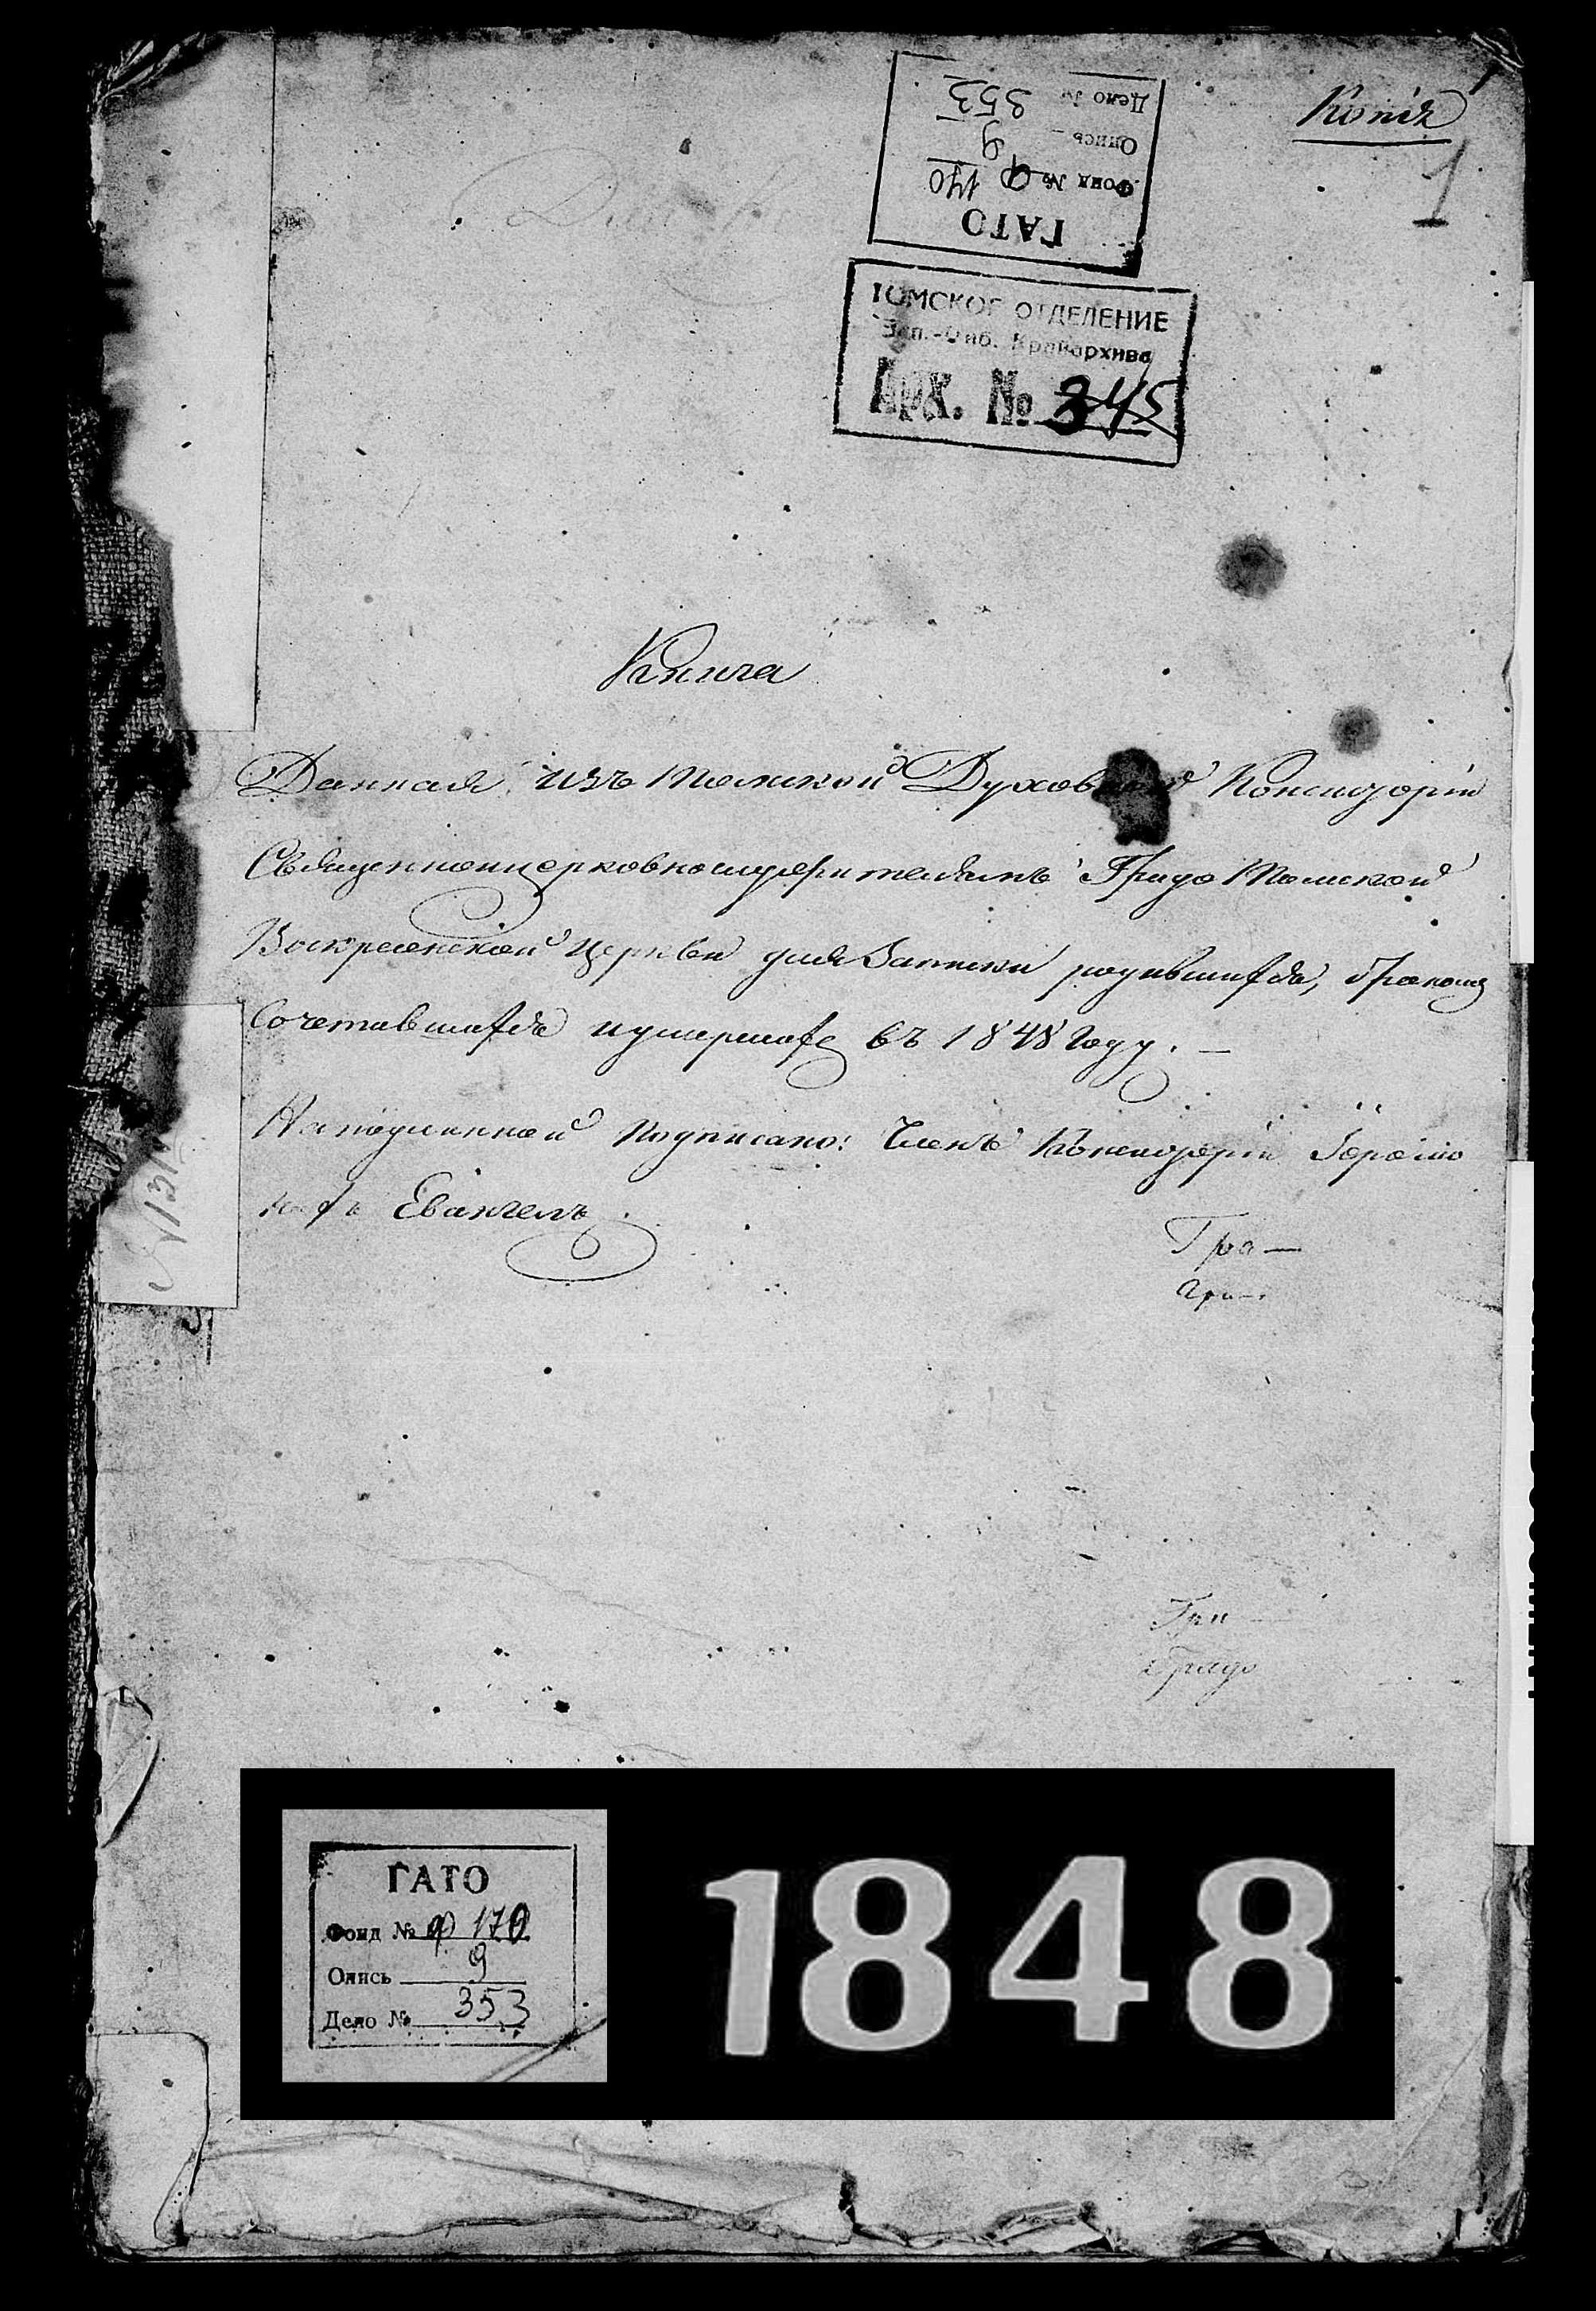 Копія
1
Дело № 353
Опись 9
Фонд № Ф 170
ГАТО
ТОМСКОЕ ОТДЕЛЕНИЕ
Зап.-Сиб. Крайархива
Арх. № 345
Книга
Данная изъ Томской Духовной Консисторіи
Священноцерковнослужителямъ Градо Томской
Воскресенской Церкви для записки родившихся, бракомъ
сочетавшихся и умершихъ въ 1848 году. —
На подлинной подписано: Членъ Консисторіи Іеромо
нахъ Евангелъ
Гра —
Гра —
Градо
ГАТО
Фонд № Ф 170
Опись 9
Дело № 353
1848